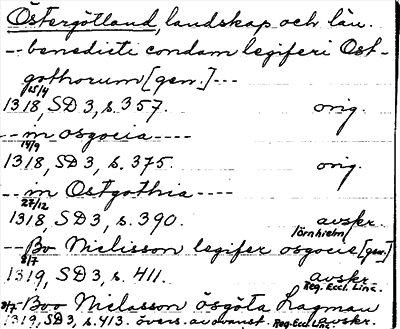 Östergötland, landskap och län.
-- benedicti condam legiferi Ost-
gothorum [gen.] ---
15/4
1318, SD 3, s. 357. orig.
-- in osgocia ----
14/9
1318, SD 3, s. 375. orig.
-- in Ostgothia ----
27/12
1318, SD 3, s. 390. avskr.
/örnhielm/
-- Bo Nielisson legifer osgocie [gen.]
8/7
1319, SD 3, s. 411. avskr.
Reg. Eccl. Linc.
8/7 Boo Niclasson ösgöta Lagman
1319, SD 3, s. 413. övers. av avanst. Reg. Eccl. Linc. avskr.